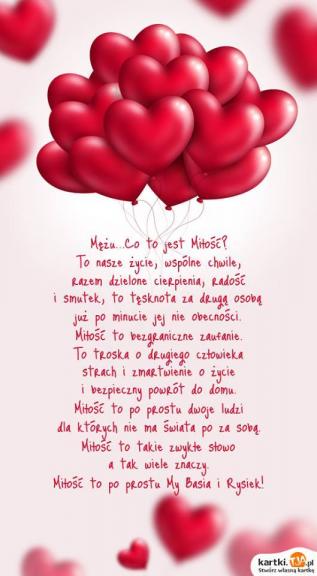 Mężu...Co to jest Miłość?
To nasze życie, wspólne chwile,
razem dzielone cierpienia, radość
i smutek, to tęsknota za drugą osobą
już po minucie jej nie obecności.
Miłość to bezgraniczne zaufanie.
To troska o drugiego człowieka
strach i zmartwienie o życie
i bezpieczny powrót do domu.
Miłość to po prostu dwoje ludzi
dla których nie ma świata po za sobą.
Miłość to takie zwykłe słowo
a tak wiele znaczy.
Miłość to po prostu My Basia i Rysiek!
kartki.TJA.pl
Stwórz własną kartkę